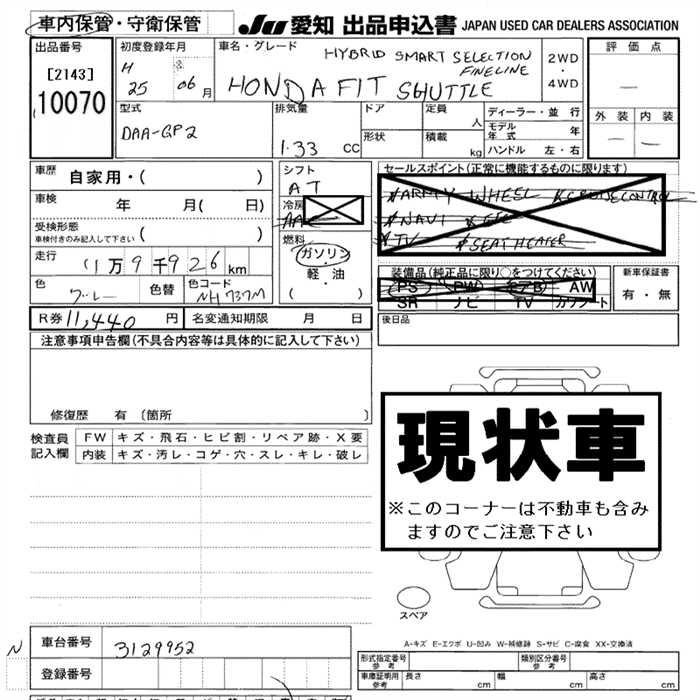 車内保管・守衛保管
JU 愛知 出品申込書 JAPAN USED CAR DEALERS ASSOCIATION
出品番号
[2143]
10070
初度登録年月
H 25 06月
車名・グレード
HYBRID SMART SELECTION
FINELINE
HONDA FIT SHUTTLE
2WD
・
4WD
評価点
外装 内装
型式
DAA-GP2
排気量
1.33 CC
ドア
形状
定員 人
積載 kg
ディーラー・並行
モデル年式 年
ハンドル 左・右
車歴 自家用・( )
車検 年 月( 日)
受検形態
車検付きのみ記入して下さい ( )
走行 11万9千926km
色 グレー 色替 色コード NH737M
シフト
AT
冷房
AAC
燃料
ガソリン
・
軽・油
( )
セールスポイント(正常に機能するものに限ります)
NAVI
TV #SEATHEATER
装備品(純正品に限り○をつけてください)
(PS) PW AW
SR ナビ TV
新車保証書
有・無
R券 11,440 円 名変通知期限 月 日
後日品
注意事項申告欄(不具合内容等は具体的に記入して下さい)
修復歴 有〔箇所 〕
検査員
記入欄
FW キズ・飛石・ヒビ割・リペア跡・X要
内装 キズ・汚レ・コゲ・穴・スレ・キレ・破レ
現状車
※このコーナーは不動車も含み
ますのでご注意下さい
スペア
A-キズ E-エクボ U-凹み W-補修跡 S-サビ C-腐食 XX-交換済
N
車台番号 3129952
登録番号
形式指定番号
参考
類別区分番号
参考
車庫証明用
参考
長さ cm 幅 cm 高さ cm